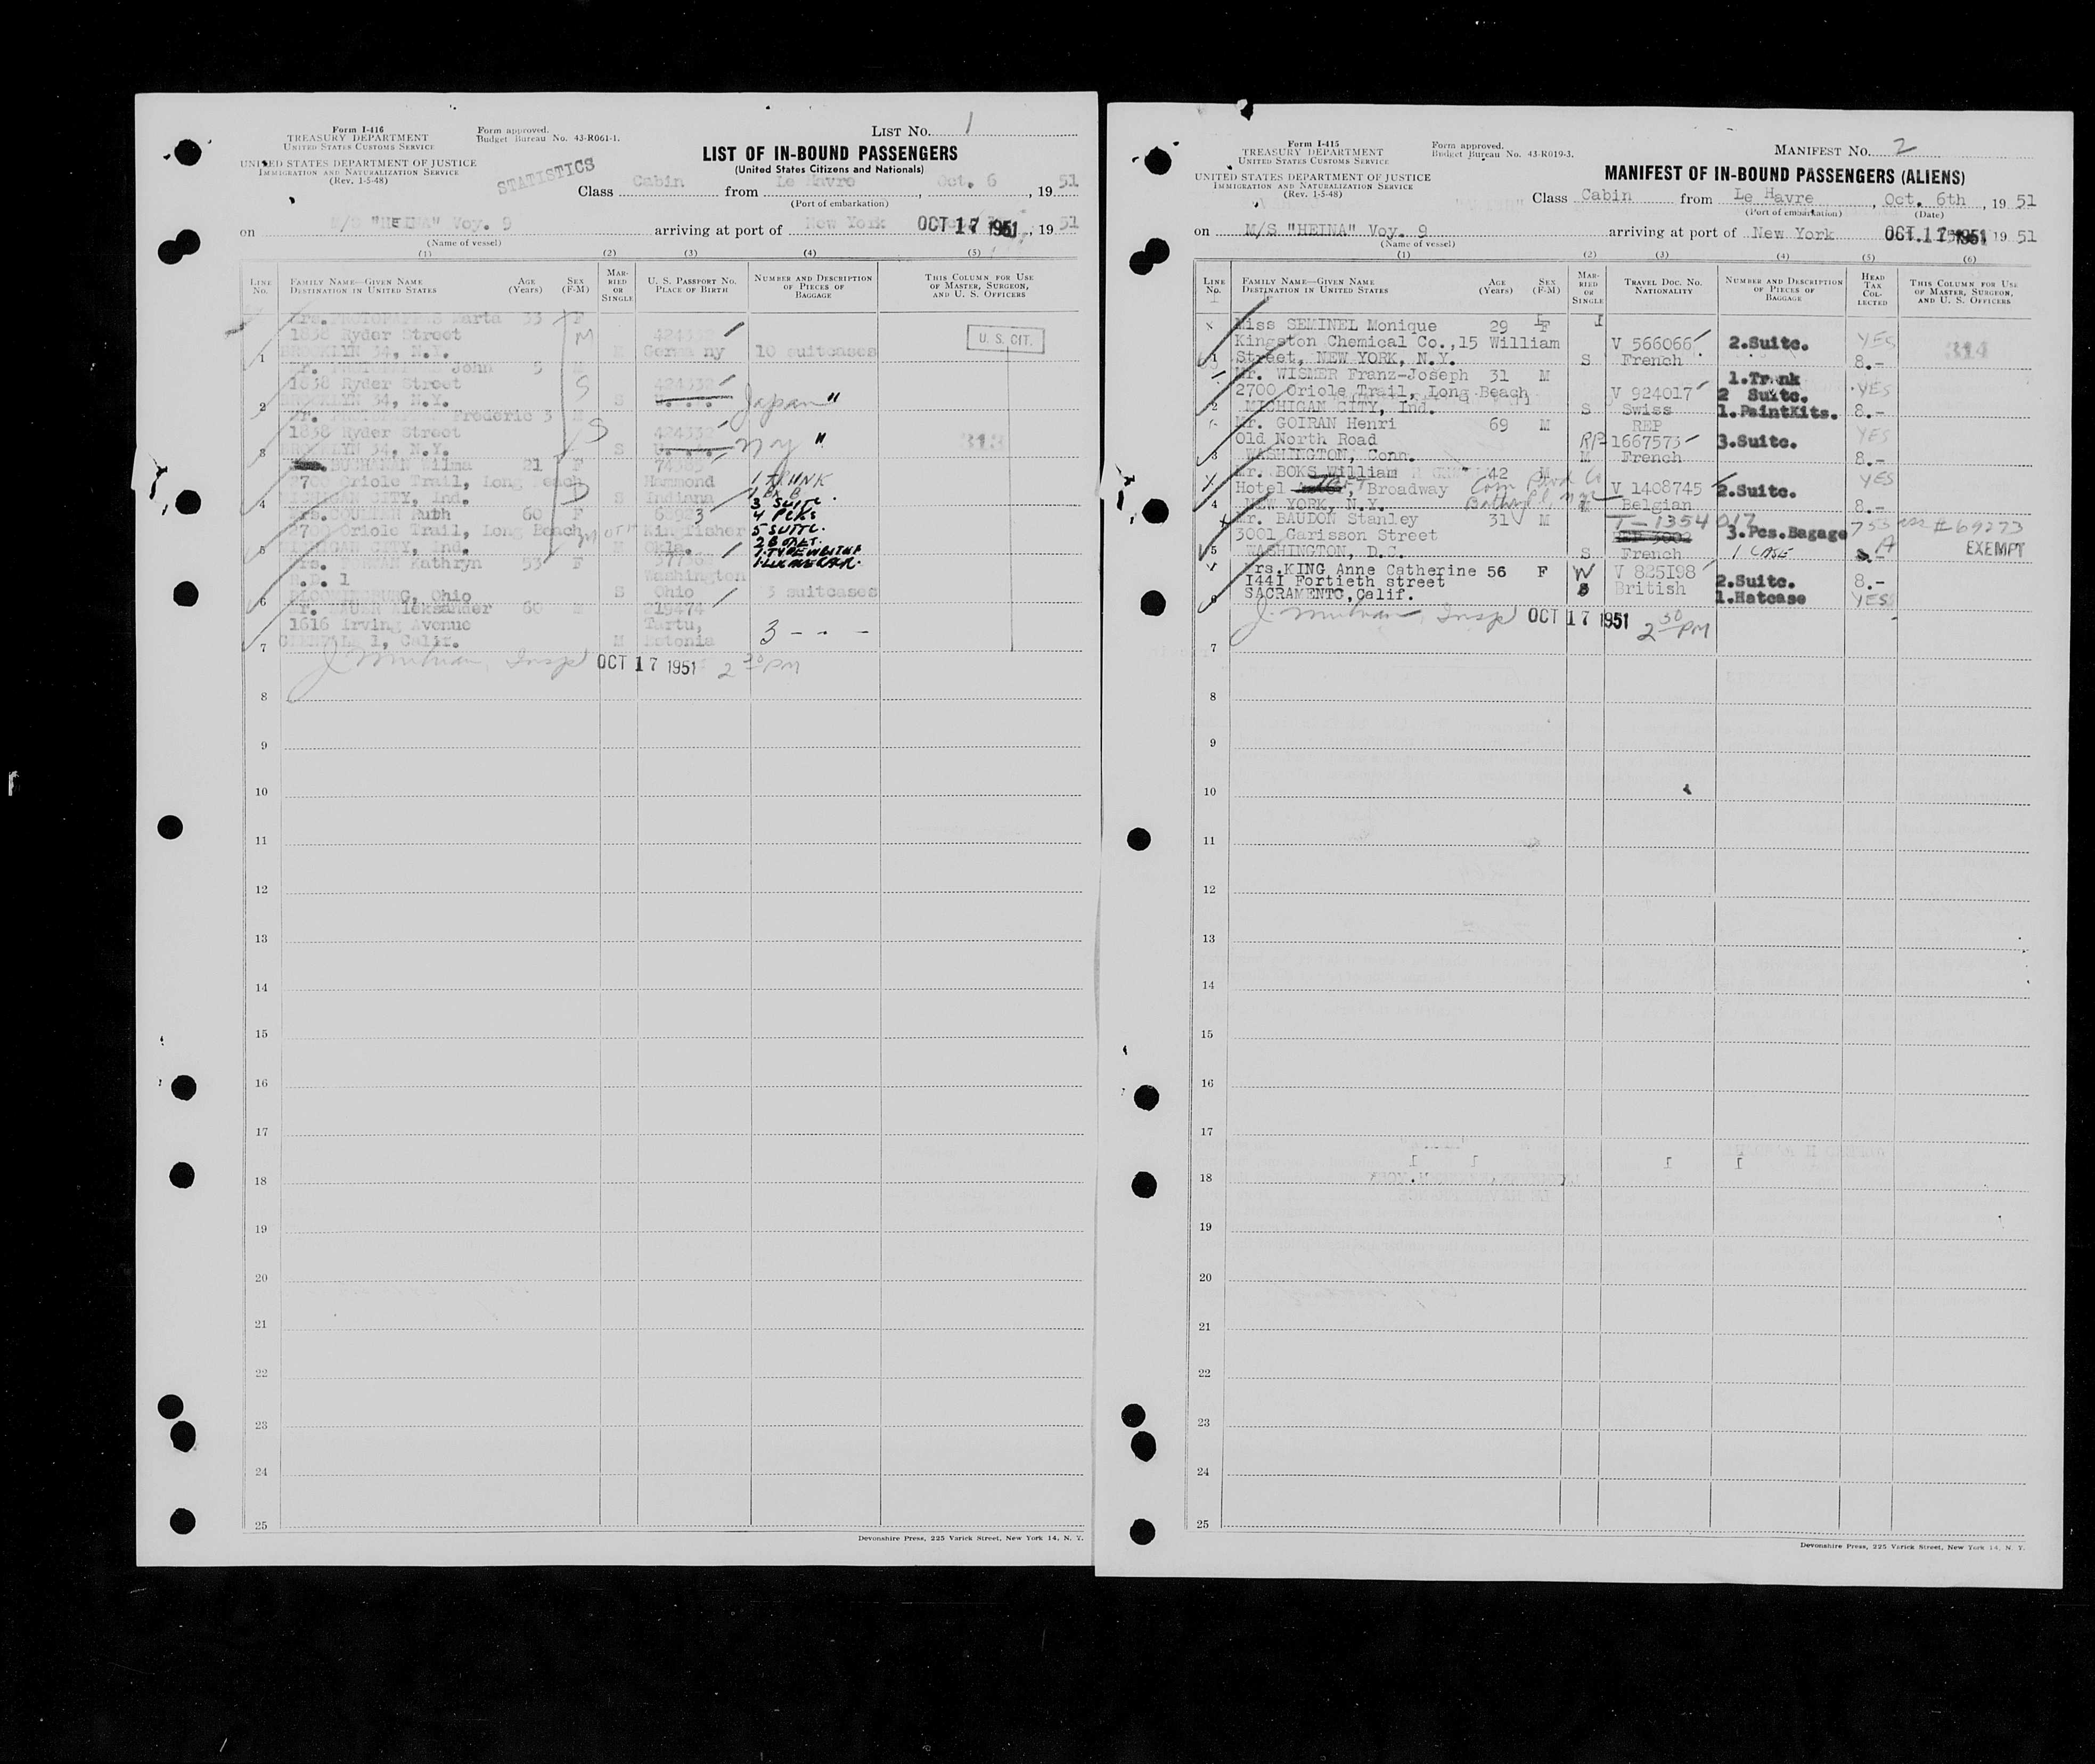 Form I-416
TREASURY DEPARTMENT
UNITED STATES CUSTOMS SERVICE
UNITED STATES DEPARTMENT OF JUSTICE
IMMIGRATION AND NATURALIZATION SERVICE
(Rev. 1-5-48)
Form approved.
Budget Bureau No. 43-R061-1.
STATISTICS
LIST NO. 1
LIST OF IN-BOUND PASSENGERS
(United States Citizens and Nationals)
Class Cabin from Le Havre, Oct. 6, 1951
(Port of embarkation)
on M/S "HEINA" Voy. 9 arriving at port of New York OCT 17 1951, 1951
(Name of vessel)
(1) (2) (3) (4) (5)
LINE NO.
FAMILY NAME—GIVEN NAME
DESTINATION IN UNITED STATES
AGE (Years)
SEX (F-M)
MARRIED OR SINGLE
U. S. PASSPORT NO.
PLACE OF BIRTH
NUMBER AND DESCRIPTION OF PIECES OF BAGGAGE
THIS COLUMN FOR USE OF MASTER, SURGEON, AND U. S. OFFICERS
Mrs. Marta 33 F
1838 Ryder Street M 424332
1 BROOKLYN 34, N.Y. M Germany 10 suitcases
U. S. CIT.
Mr. John 5 M
1838 Ryder Street S 424332
2 BROOKLYN 34, N.Y. S Japan "
Mr. Frederic 3 M
1838 Ryder Street S 424332
3 BROOKLYN 34, N.Y. S NY " 313
BUCHANAN Wilma 21 F
2700 Oriole Trail, Long Beach Hammond 1 TRUNK
4 MICHIGAN CITY, Ind. S Indiana 3 SUITC.
Mrs. Ruth 60 F 4 PCKS
2700 Oriole Trail, Long Beach Kingfisher 5 SUITC.
5 MICHIGAN CITY, Ind. Okla.
Mrs. Kathryn 53 F
R.D. 1 Washington
6 BLOOMINGBURG, Ohio S Ohio 3 suitcases
Mr. Aleksander 60 M 219474
1616 Irving Avenue Tartu,
7 GLENDALE 1, Calif. M Estonia 3 - - -
Insp OCT 17 1951 2 30 PM
8
9
10
11
12
13
14
15
16
17
18
19
20
21
22
23
24
25
Devonshire Press, 225 Varick Street, New York 14, N. Y.
Form I-415
TREASURY DEPARTMENT
UNITED STATES CUSTOMS SERVICE
UNITED STATES DEPARTMENT OF JUSTICE
IMMIGRATION AND NATURALIZATION SERVICE
(Rev. 1-5-48)
Form approved.
Budget Bureau No. 43-R019-3.
MANIFEST NO. 2
MANIFEST OF IN-BOUND PASSENGERS (ALIENS)
Class Cabin from Le Havre, Oct. 6th, 1951
(Port of embarkation) (Date)
on M/S "HEINA" Voy. 9 arriving at port of New York OCT. 17 1951 1951
(Name of vessel)
(1) (2) (3) (4) (5) (6)
LINE NO.
FAMILY NAME—GIVEN NAME
DESTINATION IN UNITED STATES
AGE (Years)
SEX (F-M)
MARRIED OR SINGLE
TRAVEL DOC. NO.
NATIONALITY
NUMBER AND DESCRIPTION OF PIECES OF BAGGAGE
HEAD TAX COLLECTED
THIS COLUMN FOR USE OF MASTER, SURGEON, AND U. S. OFFICERS
Miss SEMINEL Monique 29 F
Kingston Chemical Co.,15 William V 566066 2.Suitc. YES 314
1 Street, NEW YORK, N.Y. S French 8.-
Mr. WISMER Franz-Joseph 31 M 1.Trunk
2700 Oriole Trail, Long Beach V 924017 2 Suitc. YES
2 MICHIGAN CITY, Ind. S Swiss 1.PaintKits. 8.-
Mr. GOIRAN Henri 69 M REP
Old North Road RP 1667573 3.Suitc. YES
3 WASHINGTON, Conn. M French 8.-
Mr. BOKS William 42 M
Hotel , Broadway V 1408745 2.Suitc. YES
4 NEW YORK, N.Y. Belgian 8.-
Mr. BAUDON Stanley 31 M T-1354017
3001 Garisson Street 3.Pcs.Bagage #69273
5 WASHINGTON, D.C. S French 1 CASE EXEMPT
Mrs.KING Anne Catherine 56 F W V 825198
1441 Fortieth street British 2.Suitc. 8.-
6 SACRAMENTO,Calif. 1.Hatcase YES
Insp OCT 17 1951 2 30 PM
7
8
9
10
11
12
13
14
15
16
17
18
19
20
21
22
23
24
25
Devonshire Press, 225 Varick Street, New York 14, N. Y.